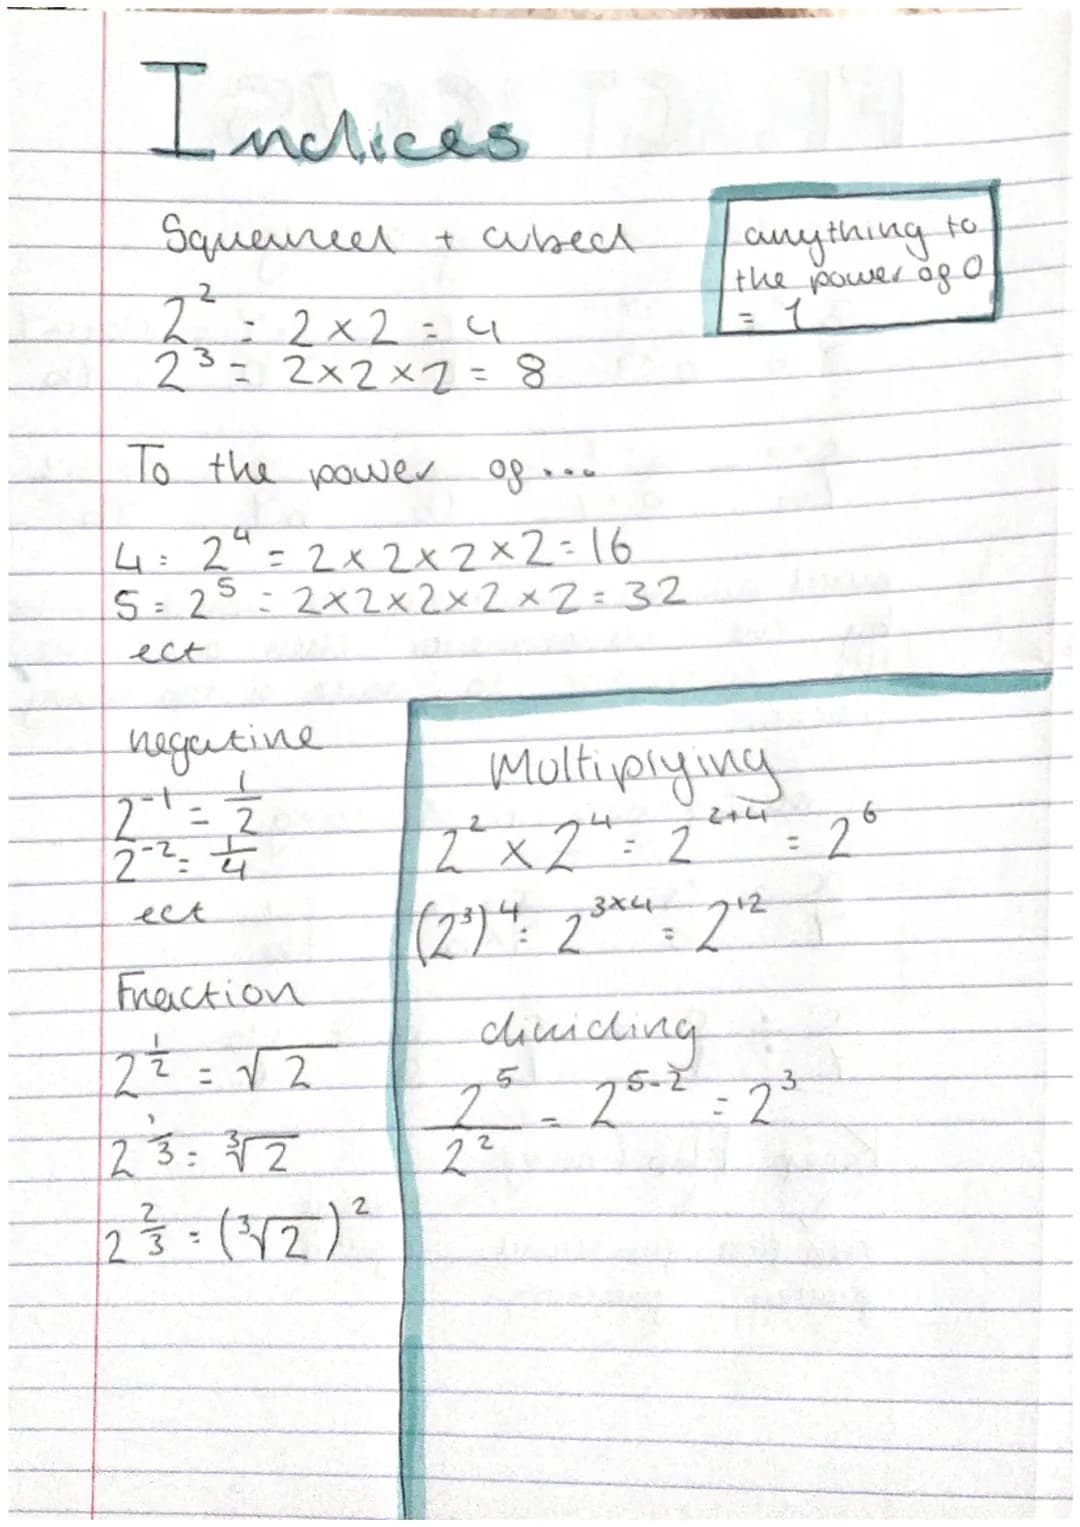 Indices
Squared + cubed
anything to
the power of 0
= 1
2² = 2 × 2 = 4
2³ = 2×2×2 = 8
To the power of ...
4 = 2⁴ = 2 × 2 × 2 × 2 = 16
5 = 2⁵ = 2×2×2×2×2 = 32
ect
negative
2⁻¹ = 1/2
2⁻² = 1/4
ect
Fraction
2^(1/2) = √2
2^(1/3) = ³√2
2^(2/3) = (³√2)²
Multiplying
2² × 2⁴ = 2²⁺⁴ = 2⁶
(2³)⁴ = 2^(3×4) = 2¹²
dividing
2⁵/2² = 2⁵⁻² = 2³